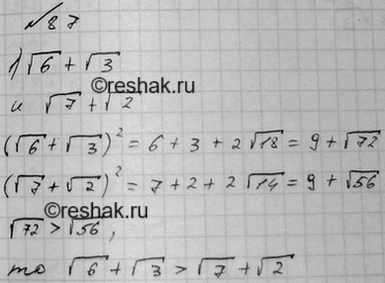 №87
1) √6 + √3
©reshak.ru
и √7 + √2
(√6 + √3)² = 6 + 3 + 2√18 = 9 + √72
(√7 + √2)² = 7 + 2 + 2√14 = 9 + √56
©reshak.ru
√72 > √56,
то √6 + √3 > √7 + √2